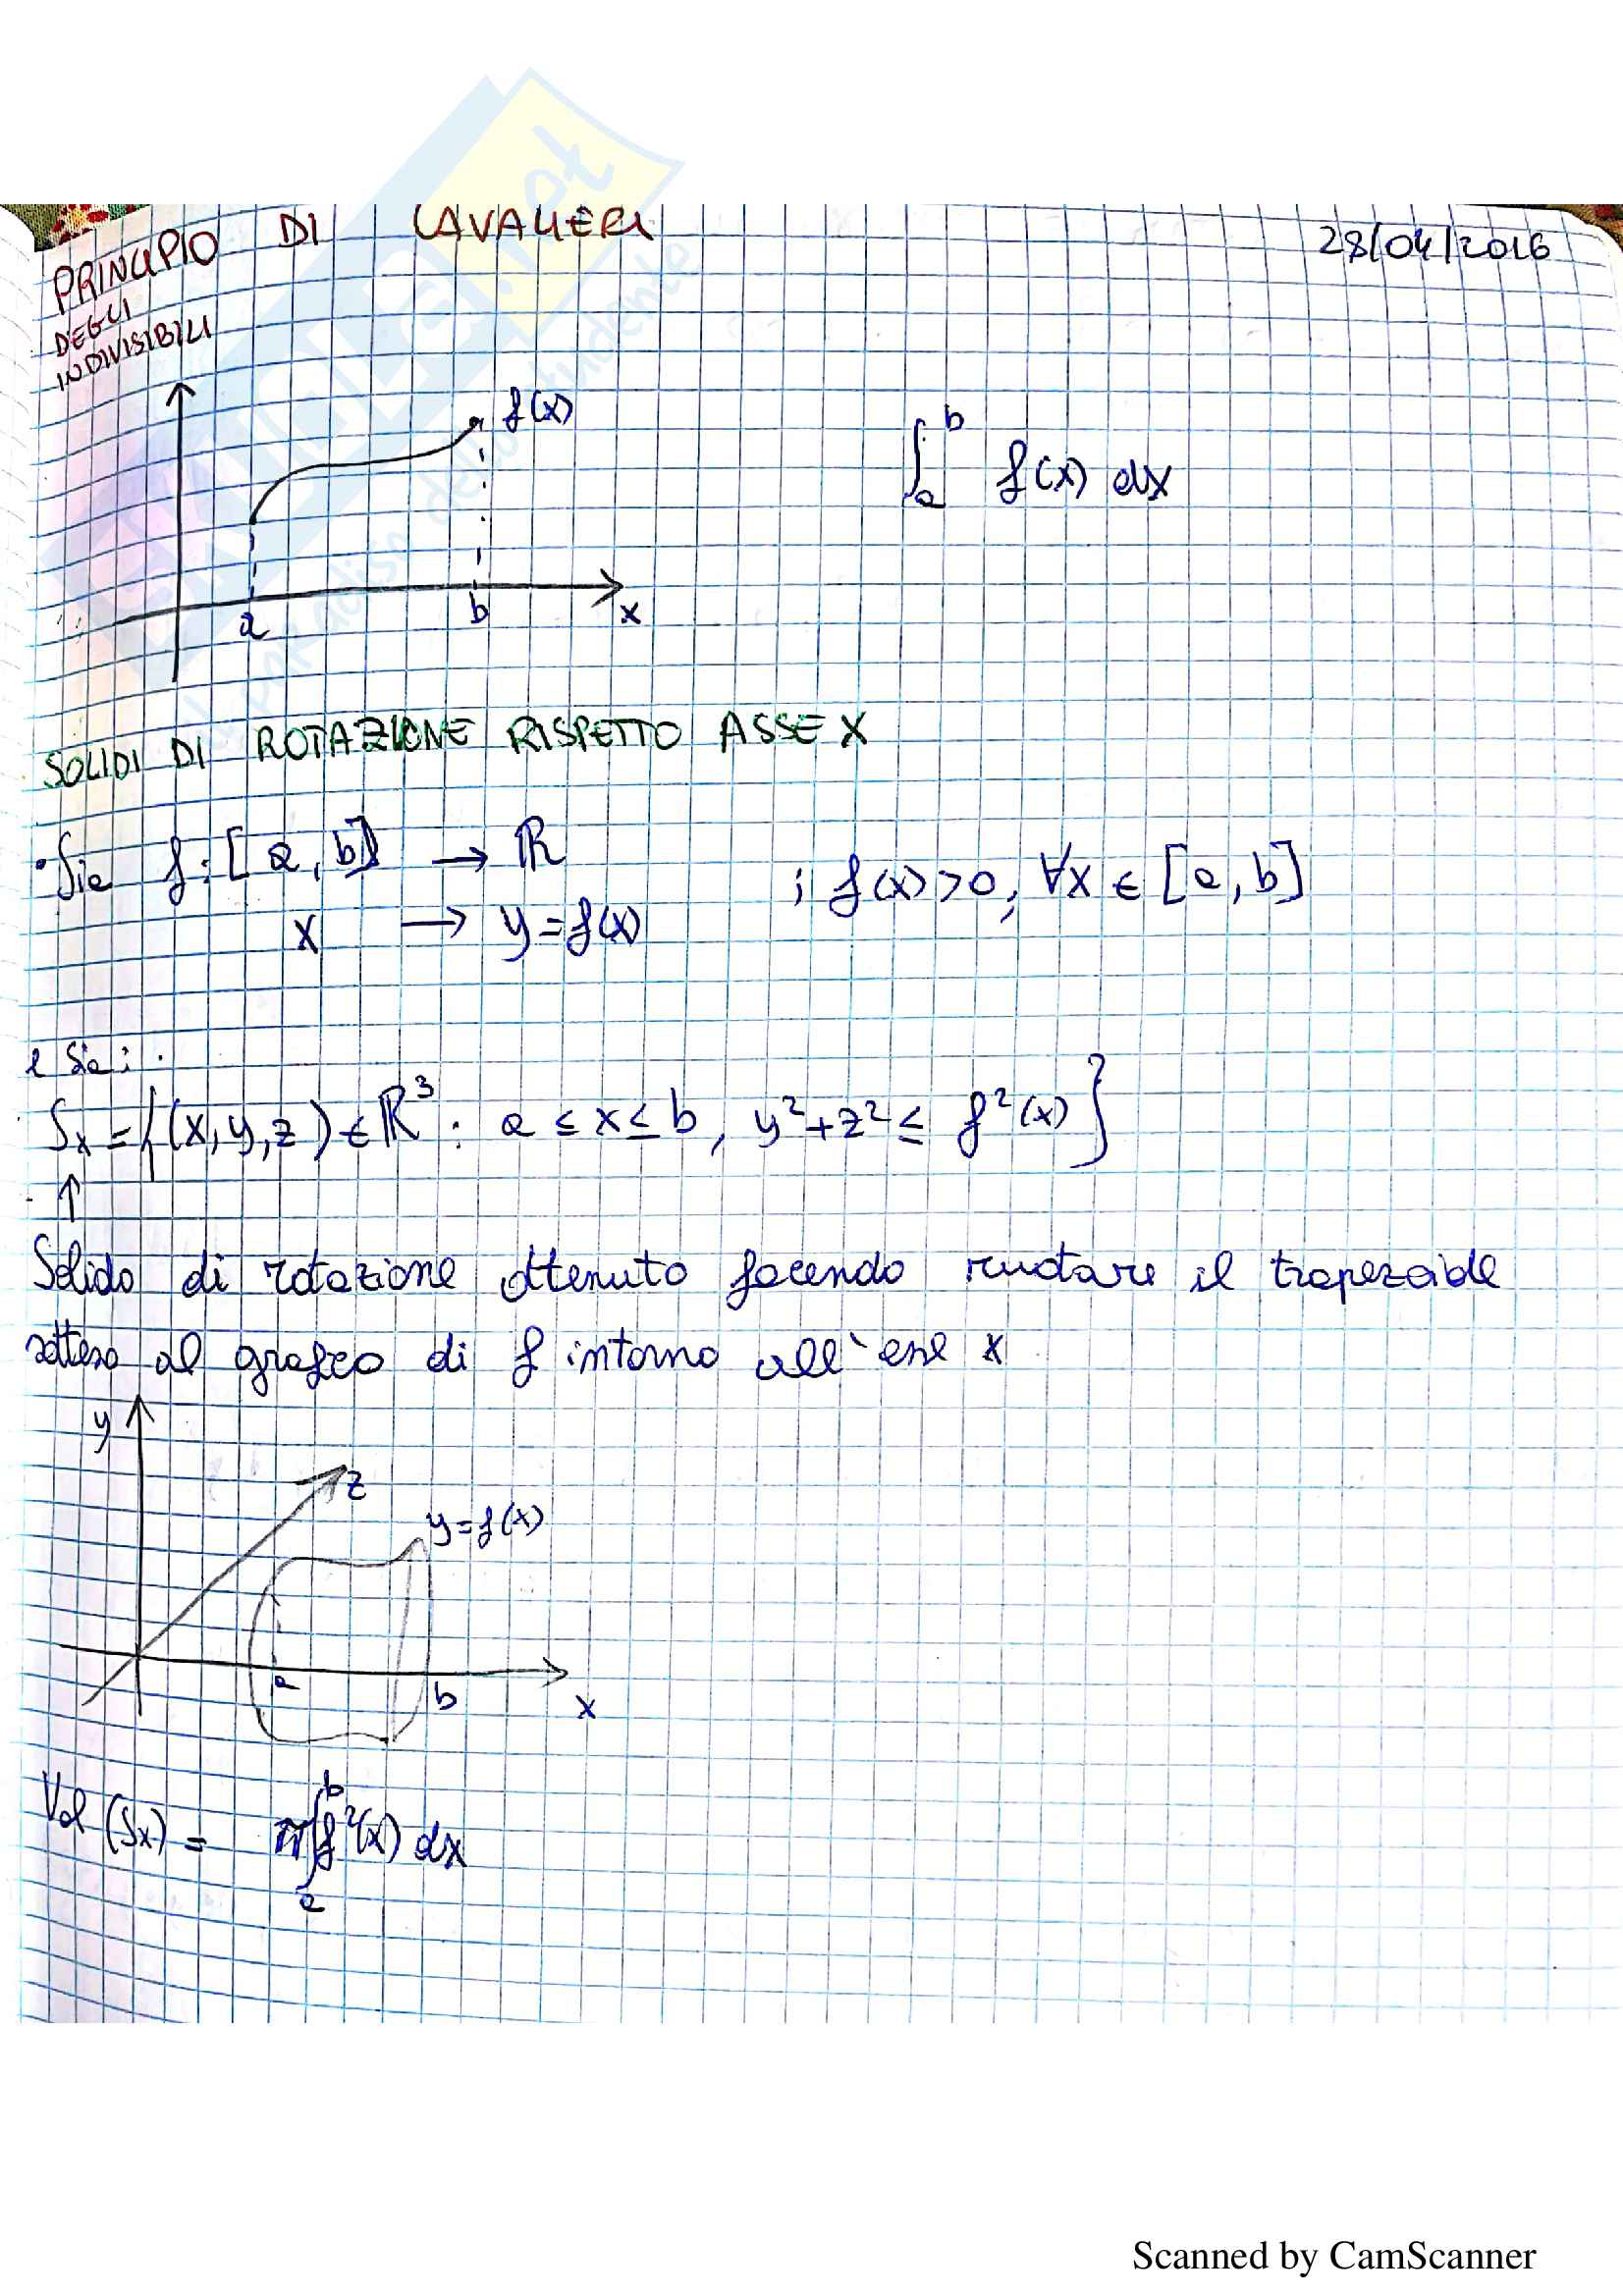 PRINCIPIO DI CAVALIERI
28/04/2016
DEGLI
INDIVISIBILI
f(x)
a
b
x
∫_a^b f(x) dx
SOLIDI DI ROTAZIONE RISPETTO ASSE X
• Sia f: [a, b] → ℝ ; f(x) > 0, ∀x ∈ [a, b]
x → y = f(x)
e sia:
Sx = {(x, y, z) ∈ ℝ³ : a ≤ x ≤ b, y² + z² ≤ f²(x)}
↑
Solido di rotazione ottenuto facendo ruotare il trapezoide
sotteso al grafico di f intorno all'asse x
y
z
y = f(x)
a
b
x
Vol (Sx) = π ∫_a^b f²(x) dx
Scanned by CamScanner